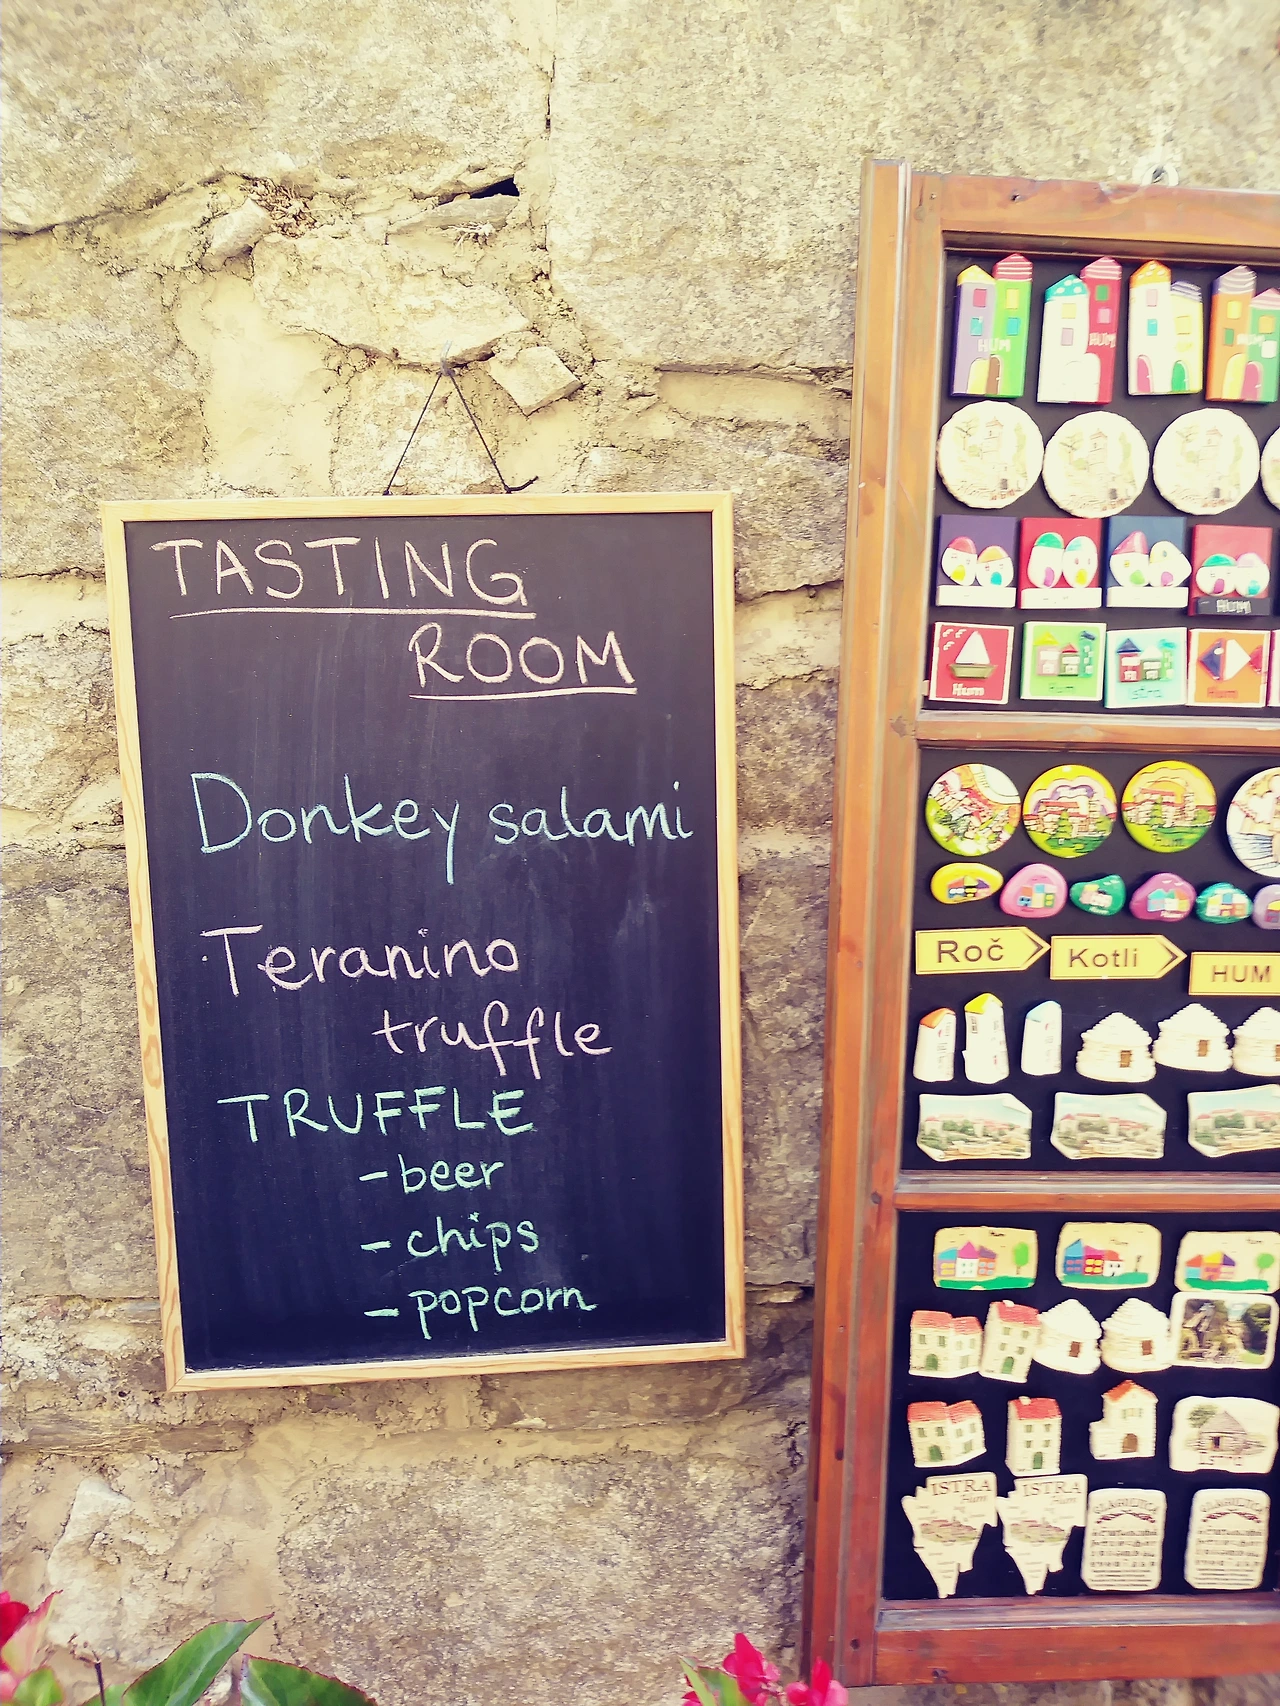 TASTING
ROOM
Donkey salami
Teranino
truffle
TRUFFLE
- beer
- chips
- popcorn
HUM
HUM
HUM
HUM
Hum
Hum
Istra
Hum
Roč
Kotli
HUM
ISTRA
Hum
ISTRA
Hum